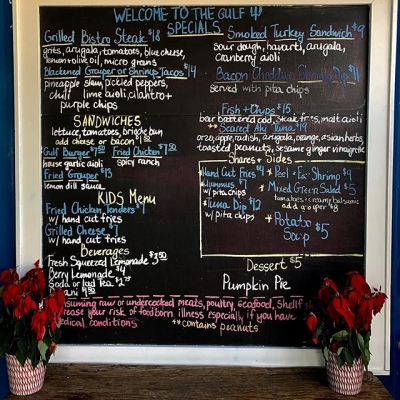 WELCOME TO THE GULF
SPECIALS
Grilled Bistro Steak $18
grits, arugala, tomatoes, blue cheese,
lemon+olive oil, micro grains
Blackened Grouper or Shrimp Tacos $14
pineapple slaw, pickled peppers,
chili lime aioli, cilantro +
purple chips
SANDWICHES
lettuce, tomatoes, brioche bun
add cheese or bacon $1
Gulf Burger $7.50 Fried Chicken $7
house garlic aioli spicy ranch
Fried Grouper $13
lemon dill sauce
KIDS Menu
Fried Chicken Tenders $7
w/ hand cut fries
Grilled Cheese $7
w/ hand cut fries
Beverages
Fresh Squeezed Lemonade $3.50
Berry Lemonade $4
Soda or Iced Tea $2.75
Smoked Turkey Sandwich $9
sour dough, havarti, arugala,
cranberry aioli
Bacon Cheddar Shrimp Dip $11
served with pita chips
Fish + Chips $15
bar battered cod, steak fries, malt aioli
** Scared Ahi Tuna $19
orzo, apple, radish, arugala, orange, asian herbs,
toasted peanuts, sesame ginger vinegrette
Shares + Sides
* Hand Cut Fries $4
* Hummus $7
w/ pita chips
* Tuna Dip $12
w/ pita chips
* Peel + Eat Shrimp $9
* Mixed Green Salad $5
tomatoes + creamy balsamic
add grouper $8
* Potato
Soup $5
Dessert $5
Pumpkin Pie
consuming raw or undercooked meats, poultry, seafood, shellf
increase your risk of food born illness especially if you have
medical conditions ** contains peanuts